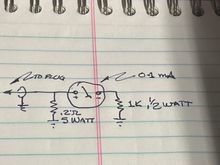 TO PLUG
0-1 mA
.2Ω
5 WATT
1K ½ WATT